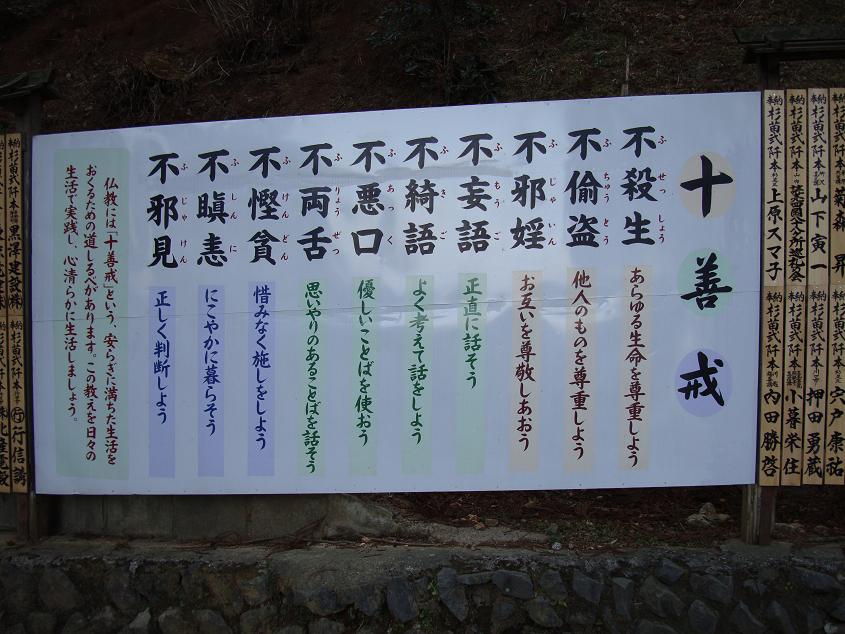 十善戒
不殺生
ふせっしょう
あらゆる生命を尊重しよう
不偸盗
ふちゅうとう
他人のものを尊重しよう
不邪婬
ふじゃいん
お互いを尊敬しあおう
不妄語
ふもうご
正直に話そう
不綺語
ふきご
よく考えて話をしよう
不悪口
ふあっく
優しいことばを使おう
不両舌
ふりょうぜつ
思いやりのあることばを話そう
不慳貪
ふけんどん
惜みなく施しをしよう
不瞋恚
ふしんに
にこやかに暮らそう
不邪見
ふじゃけん
正しく判断しよう
仏教には「十善戒」という、安らぎに満ちた生活を
おくるための道しるべがあります。この教えを日々の
生活で実践し、心清らかに生活しましょう。
奉納 杉苗弐阡本 菊森 昇
奉納 杉苗弐阡本 山下寅一
奉納 杉苗弐阡本
奉納 杉苗弐阡本 上原スマ子
杉苗弐阡本 宍戸康祐
杉苗弐阡本 押田勇蔵
杉苗弐阡本 小暮栄住
杉苗弐阡本 内田勝啓
奉納 杉苗弐阡本 黒澤建設㈱
杉苗弐阡本 行信講